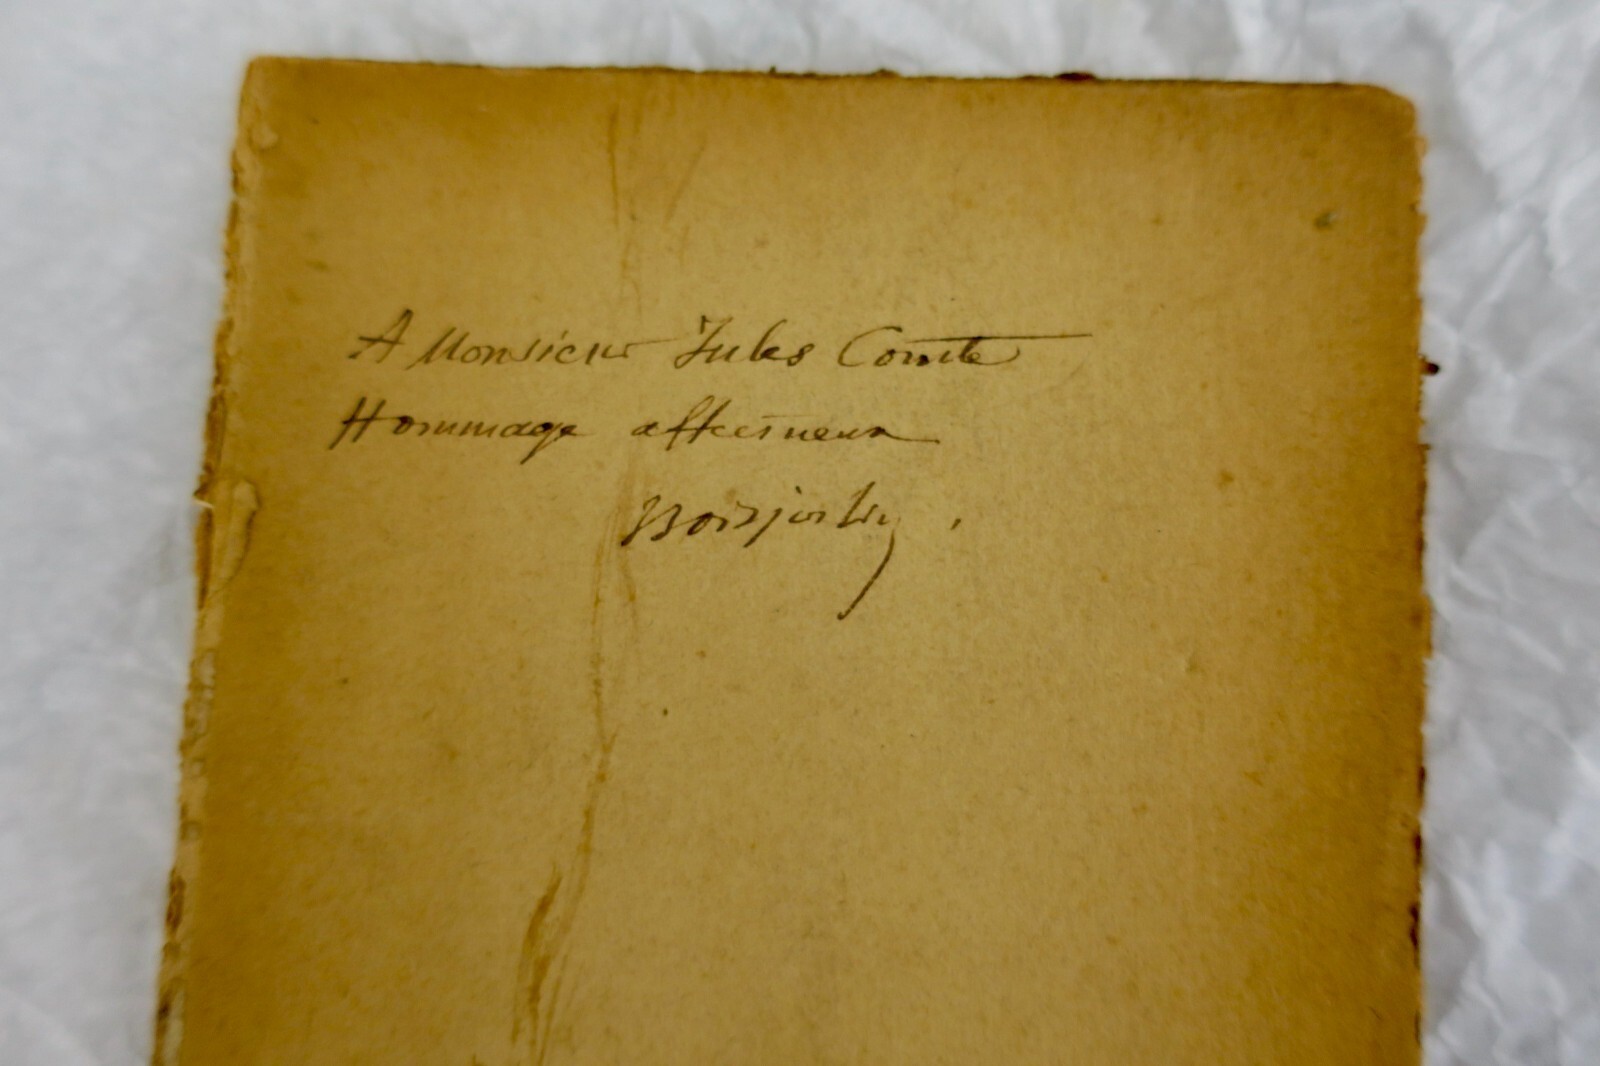 A Monsieur Jules Comte
Hommage affectueux